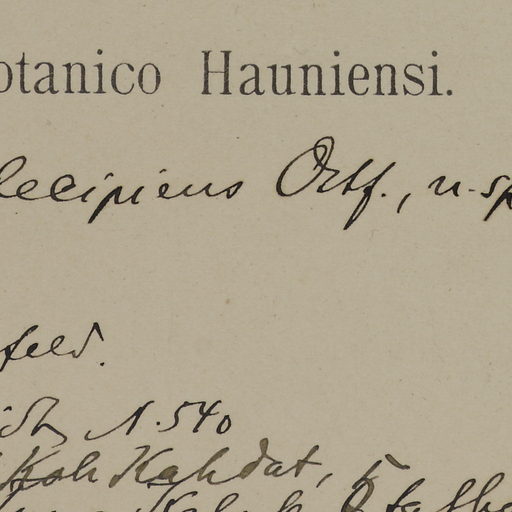 otanico Hauniensi.
decipiens Ostf., n. sp
feld.
N. 540
Koh Kahdat, 5